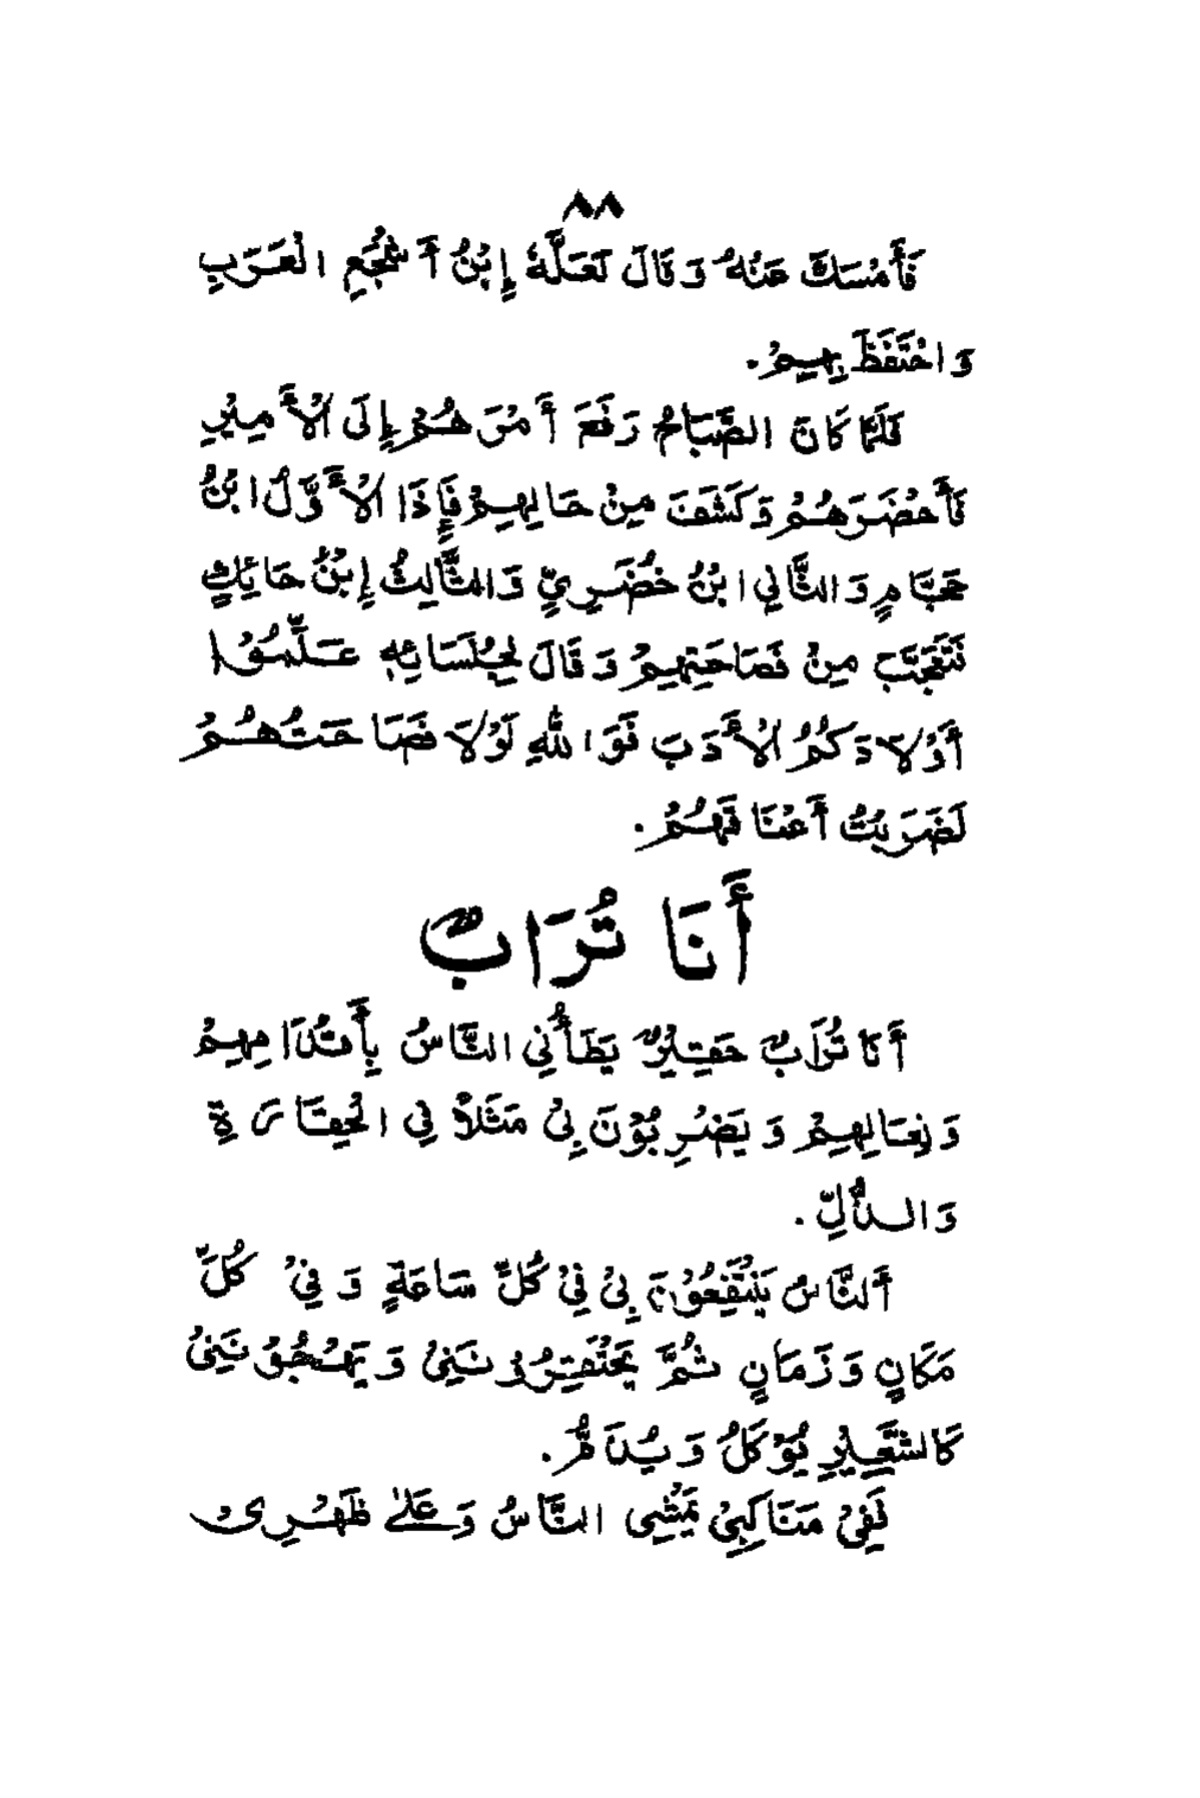 ٨٨
فَأَمْسَكَ عَنْهُ وَقَالَ لَعَلَّهُ إِبْنُ أَشْجَعِ الْعَرَبِ
وَاحْتَفَظَ بِهِمْ.
فَلَمَّا كَانَ الصَّبَاحُ رَفَعَ أَمْرَهُمْ إِلَى الْأَمِيْرِ
فَأَحْضَرَهُمْ وَكَشَفَ مِنْ حَالِهِمْ فَإِذَا الْأَوَّلُ ابْنُ
حَجَّامٍ وَالثَّانِي ابْنُ خُضَرِيٍّ وَالثَّالِثُ إِبْنُ حَائِكٍ
فَتَعَجَّبَ مِنْ فَصَاحَتِهِمْ وَقَالَ لِجُلَسَائِهِ عَلِّمُوْا
أَوْلَادَكُمُ الْأَدَبَ فَوَاللهِ لَوْلَا فَصَاحَتُهُمْ
لَضَرَبْتُ أَعْنَاقَهُمْ.
أَنَا تُرَابٌ
أَنَا تُرَابٌ حَقِيْرٌ يَطَأُنِي النَّاسُ بِأَقْدَامِهِمْ
وَنِعَالِهِمْ وَيَضْرِبُوْنَ بِيْ مَثَلاً فِي الْحِقَارَةِ
وَالذُّلِّ.
أَلنَّاسُ يَنْتَفِعُوْنَ بِيْ فِيْ كُلِّ سَاعَةٍ وَفِيْ كُلِّ
مَكَانٍ وَزَمَانٍ ثُمَّ يَحْتَقِرُوْنَنِيْ وَيَهْجُوْنَنِيْ
كَالشَّعِيْرِ يُؤْكَلُ وَيُذَامُّ.
فَفِيْ مَنَاكِبِيْ يَمْشِى النَّاسُ وَعَلٰى ظَهْرِيْ